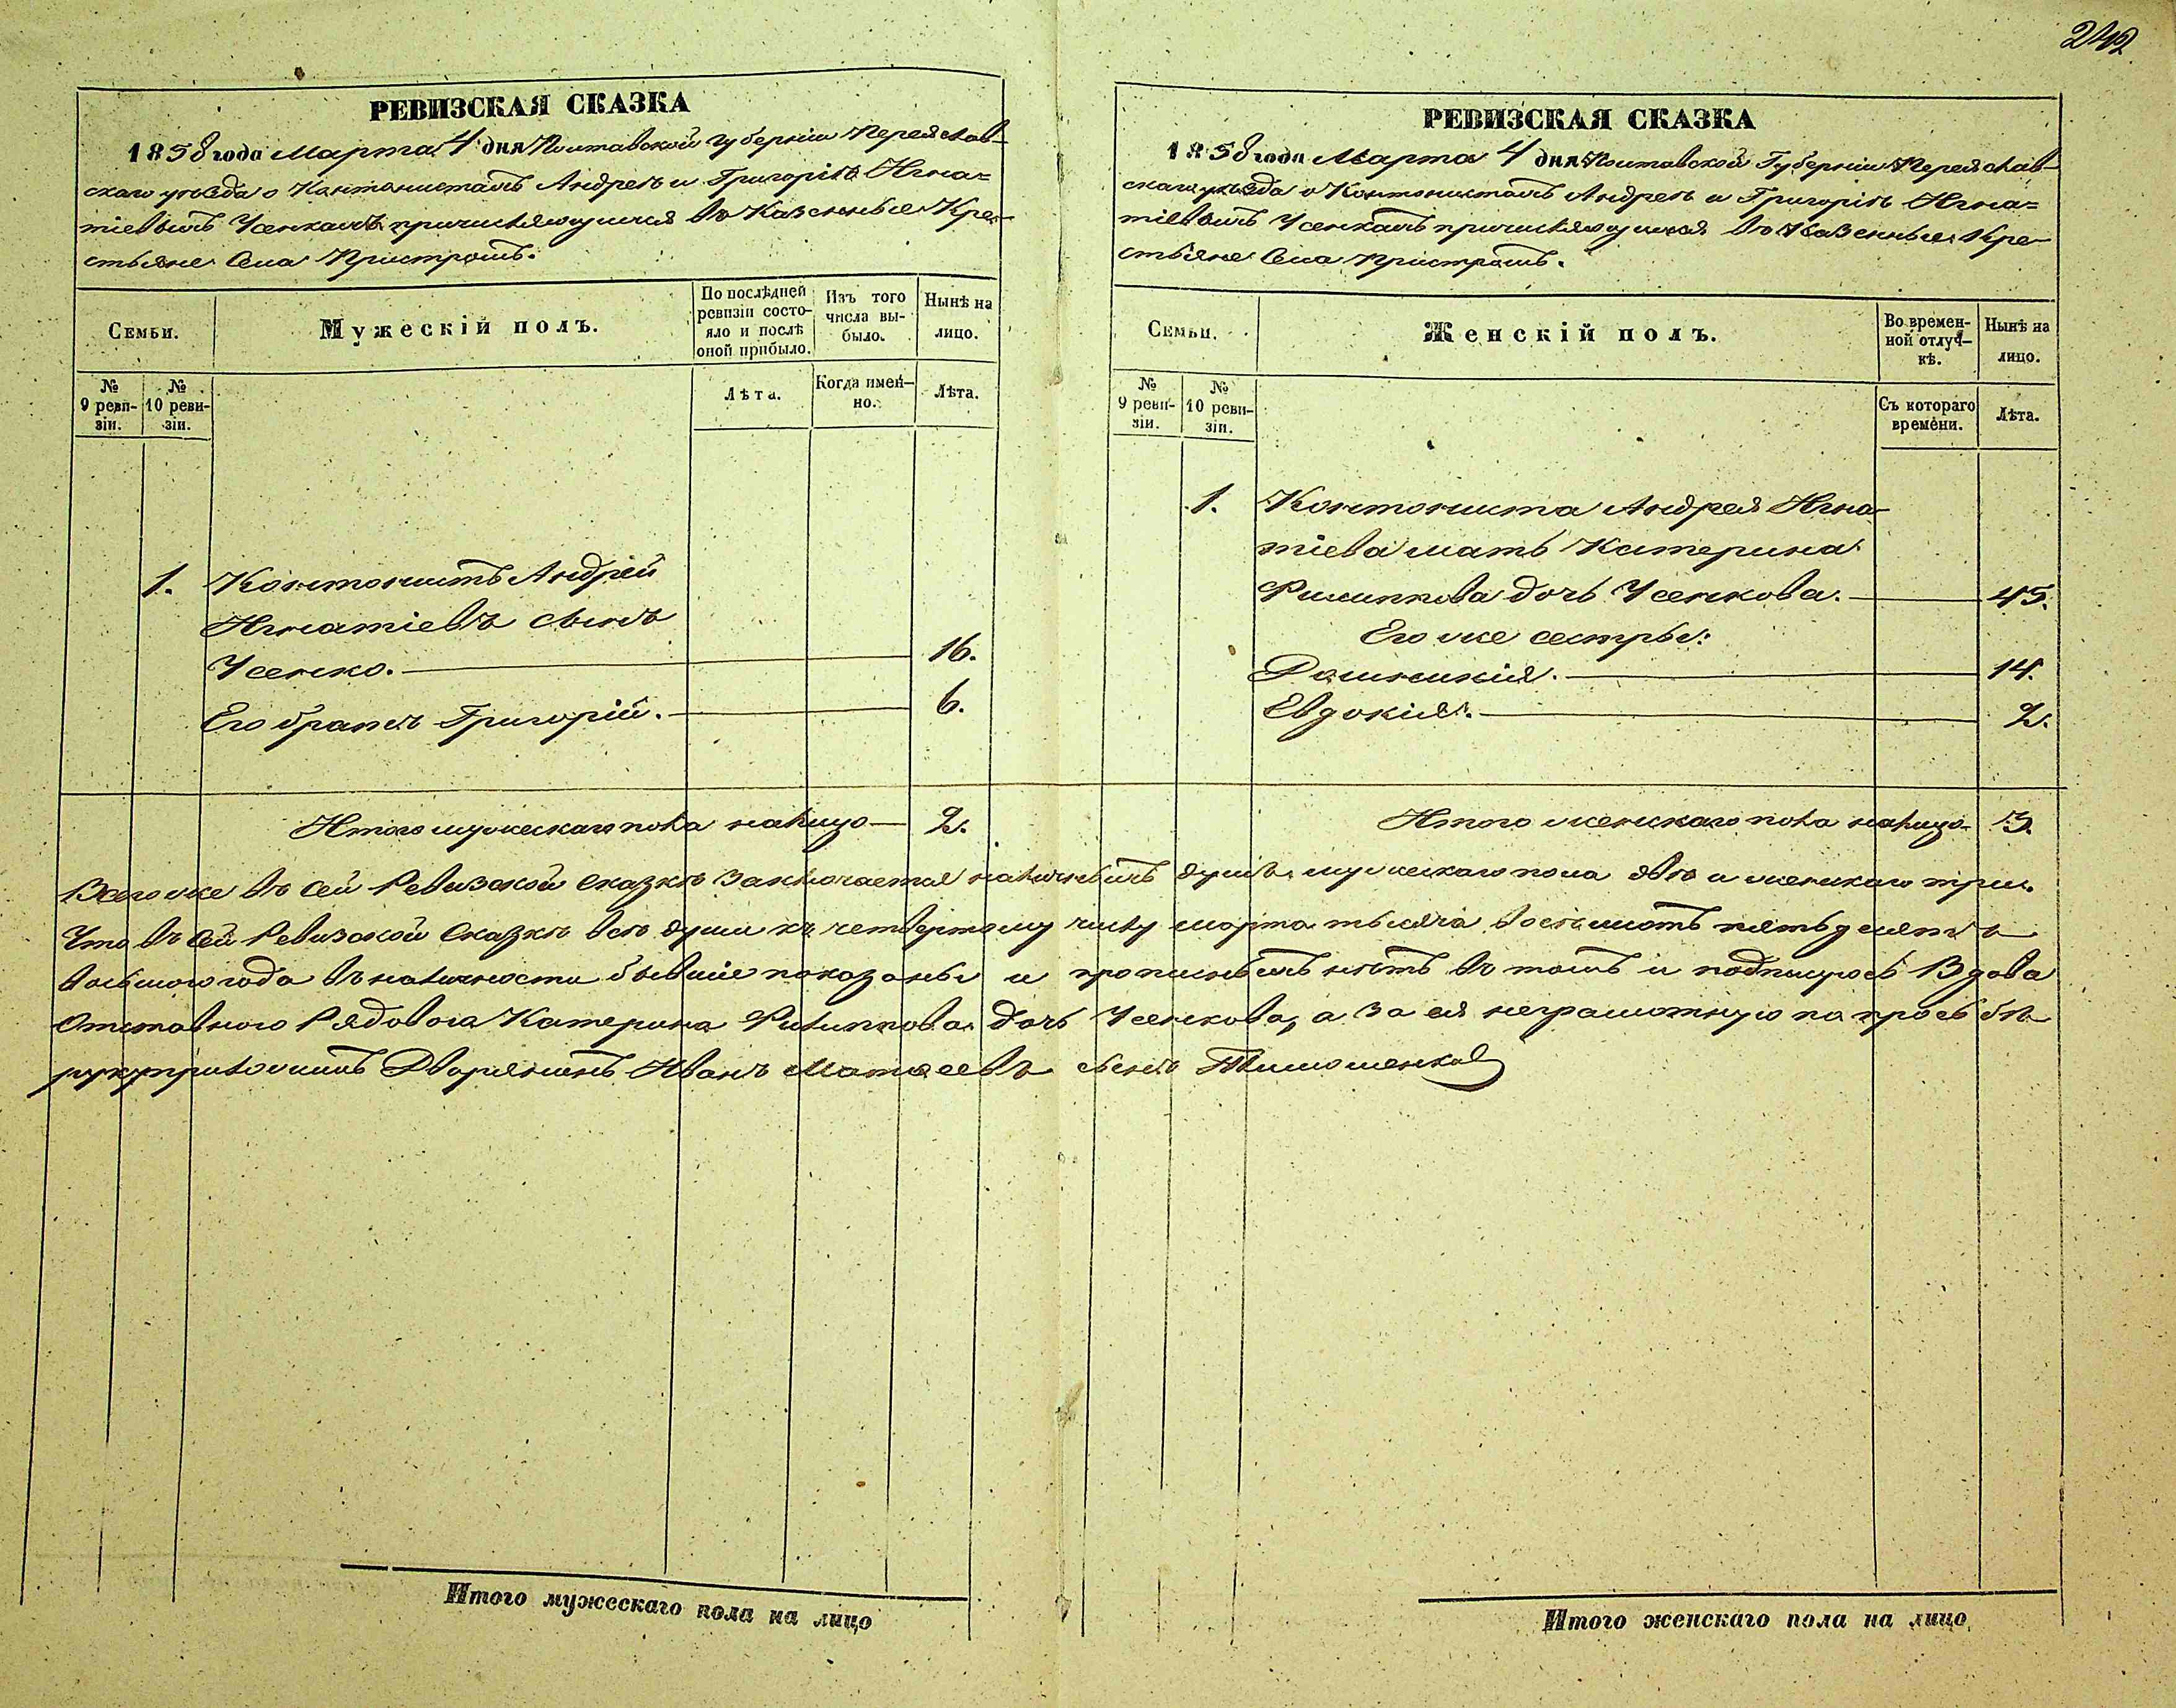 242
РЕВИЗСКАЯ СКАЗКА
1858 года Марта 4 дня Полтавской губерніи Переяслав-
скаго уѣзда о Кантонистахъ Андреѣ и Григоріѣ Игна=
тіевыхъ Усенкахъ причисляющихся въ Казенные Кре-
стьяне Села Пристромъ.
Семьи.
Мужескій полъ.
По послѣдней ревизіи состо-
яло и послѣ
оной прибыло.
Изъ того
числа вы-
было.
Нынѣ на
лицо.
№
9 реви-
зіи.
№
10 реви-
зіи.
Лѣта.
Когда имен-
но.
Лѣта.
1. Контонистъ Андрей
Игнатіевъ сынъ
Усенко. 16.
Его братъ Григорій. 6.
Итого мужескаго пола налицо 2.
РЕВИЗСКАЯ СКАЗКА
1858 года Марта 4 дня Полтавской Губерніи Переяслав-
скаго уѣзда о Контонистахъ Андреѣ и Григоріѣ Игна=
тіевыхъ Усенкахъ причисляющихся въ Казенные Кре-
стьяне Села Пристромъ.
Семьи.
Женскій полъ.
Во времен-
ной отлуч-
кѣ.
Нынѣ на
лицо.
№
9 реви-
зіи.
№
10 реви-
зіи.
Съ котораго
времени.
Лѣта.
1. Контониста Андрея Игна-
тіева мать Катерина
Филиппова дочь Усенкова. 45.
Его же сестры:
Домникія. 14.
Евдокія. 2.
Итого женскаго пола налицо 3.
Всего же въ сей Ревизской сказкѣ заключается наличныхъ душъ мужескаго пола двѣ и женскаго три.
Что въ сей Ревизской Сказкѣ всѣ души къ четвертому числу марта тысяча восемьсотъ пятьдесятъ
восьмого года въ наличности бывшіе показаны и прописныхъ нѣтъ въ томъ и подписуюсь Вдова
Отставного Рядового Катерина Филиппова дочь Усенкова, а за ея неграмотную по просьбѣ
руку приложилъ Дворянинъ Иванъ Матвеевъ сынъ Тимошенков
Итого мужескаго пола на лицо
Итого женскаго пола на лицо